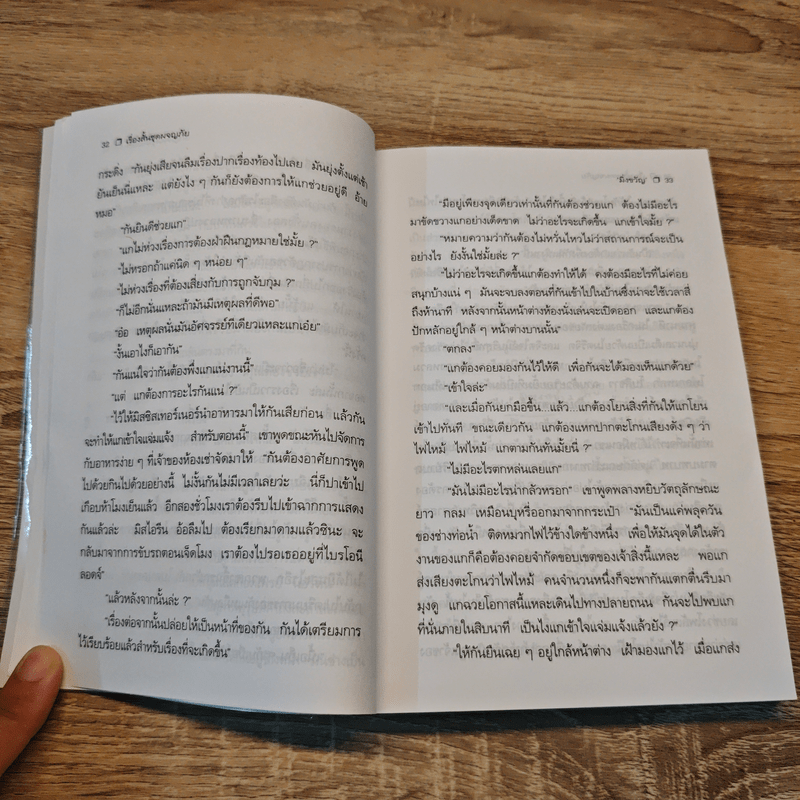 32 ❒ เรื่องสั้นชุดผจญภัย
กระดิ่ง "กันยุ่งเสียจนลืมเรื่องปากเรื่องท้องไปเลย มันยุ่งตั้งแต่เช้า
ยันเย็นนี่แหละ แต่ยังไง ๆ กันก็ยังต้องการให้แกช่วยอยู่ดี อ้าย
หมอ"
"กันยินดีช่วยแก"
"แกไม่ห่วงเรื่องการต้องฝ่าฝืนกฎหมายใช่มั้ย ?"
"ไม่หรอกถ้าแค่นิด ๆ หน่อย ๆ"
"ไม่ห่วงเรื่องที่ต้องเสี่ยงกับการถูกจับกุม ?"
"ก็ไม่อีกนั่นแหละถ้ามันมีเหตุผลที่ดีพอ"
"อ๋อ เหตุผลนั่นมันอัศจรรย์ทีเดียวแหละแกเอ๋ย"
"งั้นเอาไงก็เอากัน"
"กันแน่ใจว่ากันต้องพึ่งแกแน่งานนี้"
"แต่ แกต้องการอะไรกันแน่ ?"
"ไว้ให้มิสซิสเทอร์เนอร์นำอาหารมาให้กันเสียก่อน แล้วกัน
จะทำให้แกเข้าใจแจ่มแจ้ง สำหรับตอนนี้" เขาพูดขณะหันไปจัดการ
กับอาหารง่าย ๆ ที่เจ้าของห้องเช่าจัดมาให้ "กันต้องอาศัยการพูด
ไปด้วยกินไปด้วยอย่างนี้ ไม่งั้นกันไม่มีเวลาเลยว่ะ นี่ก็ปาเข้าไป
เกือบห้าโมงเย็นแล้ว อีกสองชั่วโมงเราต้องรีบไปเข้าฉากการแสดง
กันแล้วล่ะ มิสไอรีน อ้อลืมไป ต้องเรียกมาดามแล้วซินะ จะ
กลับมาจากการขับรถตอนเจ็ดโมง เราต้องไปรอเธออยู่ที่ไบรโอนี
ลอดจ์"
"แล้วหลังจากนั้นล่ะ ?"
"เรื่องต่อจากนั้นปล่อยให้เป็นหน้าที่ของกัน กันได้เตรียมการ
ไว้เรียบร้อยแล้วสำหรับเรื่องที่จะเกิดขึ้น"
'มิ่งขวัญ' ❒ 33
"มีอยู่เพียงจุดเดียวเท่านั้นที่กันต้องช่วยแก ต้องไม่มีอะไร
มาขัดขวางแกอย่างเด็ดขาด ไม่ว่าอะไรจะเกิดขึ้น แกเข้าใจมั้ย ?"
"หมายความว่ากันต้องไม่หวั่นไหวไม่ว่าสถานการณ์จะเป็น
อย่างไร ยังงั้นใช่มั้ยล่ะ ?"
"ไม่ว่าอะไรจะเกิดขึ้นแกต้องทำให้ได้ คงต้องมีอะไรที่ไม่ค่อย
สนุกบ้างแน่ ๆ มันจะจบลงตอนที่กันเข้าไปในบ้านซึ่งน่าจะใช้เวลาสี่
ถึงห้านาที หลังจากนั้นหน้าต่างห้องนั่งเล่นจะเปิดออก และแกต้อง
ปักหลักอยู่ใกล้ ๆ หน้าต่างบานนั้น"
"ตกลง"
"แกต้องคอยมองกันไว้ให้ดี เพื่อกันจะได้มองเห็นแกด้วย"
"เข้าใจล่ะ"
"และเมื่อกันยกมือขึ้น แล้ว แกต้องโยนสิ่งที่กันให้แกโยน
เข้าไปทันที ขณะเดียวกัน แกต้องแหกปากตะโกนเสียงดัง ๆ ว่า
ไฟไหม้ ไฟไหม้ แกตามกันทันมั้ยนี่ ?"
"ไม่มีอะไรตกหล่นเลยแก"
"มันไม่มีอะไรน่ากลัวหรอก" เขาพูดพลางหยิบวัตถุลักษณะ
ยาว กลม เหมือนบุหรี่ออกมาจากกระเป๋า "มันเป็นแค่พลุควัน
ของช่างท่อน้ำ ติดหมวกไฟไว้ข้างใดข้างหนึ่ง เพื่อให้มันจุดได้ในตัว
งานของแกก็คือต้องคอยจำกัดขอบเขตของเจ้าสิ่งนี้แหละ พอแก
ส่งเสียงตะโกนว่าไฟไหม้ คนจำนวนหนึ่งก็จะพากันแตกตื่นรีบมา
มุงดู แกฉวยโอกาสนี้แหละเดินไปทางปลายถนน กันจะไปพบแก
ที่นั่นภายในสิบนาที เป็นไงแกเข้าใจแจ่มแจ้งแล้วยัง ?"
"ให้กันยืนเฉย ๆ อยู่ใกล้หน้าต่าง เฝ้ามองแกไว้ เมื่อแกส่ง